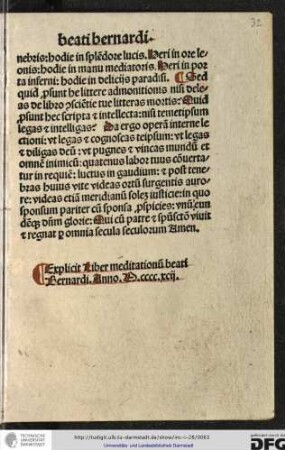 32
beati bernardi.
nebris: hodie in splẽdore lucis. Heri in ore le-
onis: hodie in manu mediatoris. Heri in por
ta inferni: hodie in delicijs paradisi. ¶ Sed
quid ꝓsunt he littere admonitionis nisi deleas
de libro ↄsciẽtie tue litteras mortis: Quid
ꝓsunt hec scripta et intellecta: nisi temetipsum
legas et intelligas? Da ergo operã interne le
ctioni: vt legas et cognoscas teipsum: vt legas
et diligas deũ: vt pugnes et vincas mundũ et
omnẽ inimicũ: quatenus labor tuus cõuerta-
tur in requiẽ: luctus in gaudium: et post tene-
bras huius vite videas ortũ surgentis auro-
re: videas etiã meridianũ solẽ iusticie: in quo
sponsum pariter cũ sponsa ꝓspicies: vnũ eun
dẽqꝫ dñm glorie: Qui cũ patre et spũsctõ viuit
et regnat ꝑ omnia secula seculorum Amen.
¶ Explicit Liber meditationũ beati
Bernardi. Anno. M.cccc.xcij.
http://tudigit.ulb.tu-darmstadt.de/show/inc-ii-28/0063
Universitäts- und Landesbibliothek Darmstadt
TECHNISCHE
UNIVERSITÄT
DARMSTADT
DFG